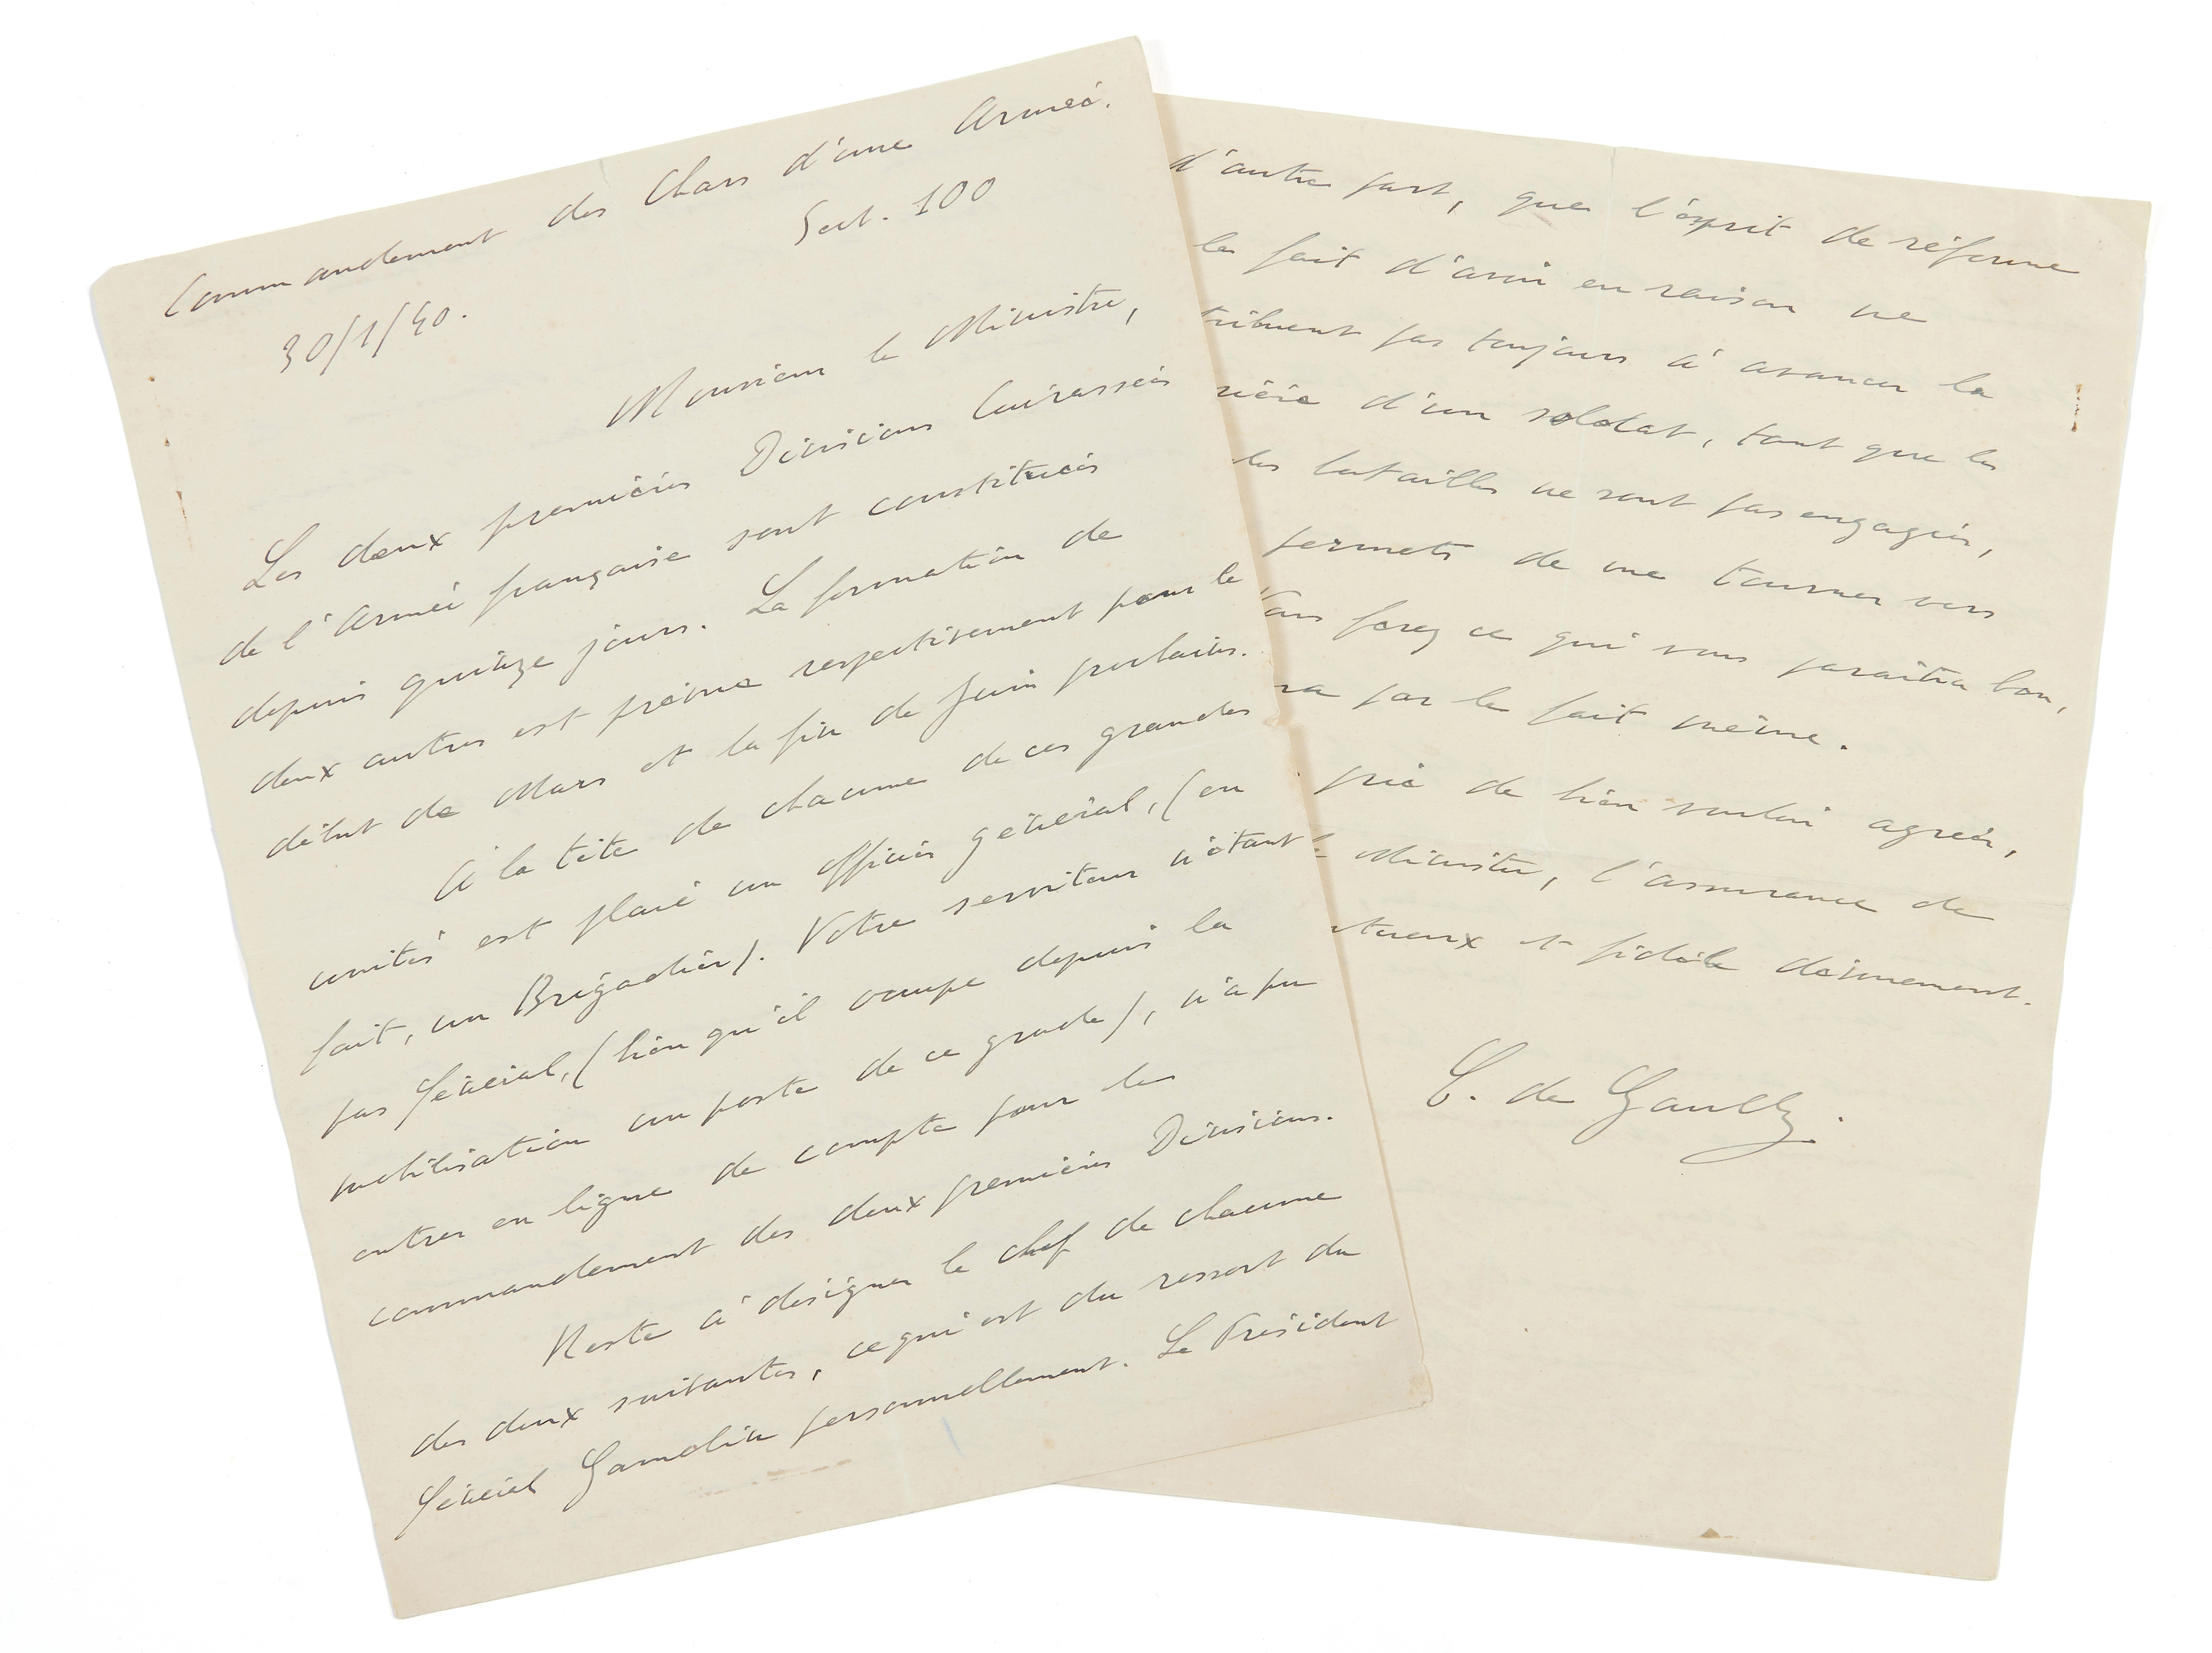 Commandement des Chars d'une Armée.
Sect. 100
30/1/40.
Monsieur le Ministre,
Les deux premières Divisions Cuirassées
de l'Armée française sont constituées
depuis quinze jours. La formation de
deux autres est prévue respectivement pour le
début de Mars et la fin de Juin prochains.
A la tête de chacune de ces grandes
unités est placé un officier général, (en
fait, un Brigadier). Votre serviteur n'étant
pas Général, (bien qu'il occupe depuis la
mobilisation un poste de ce grade), n'a pu
entrer en ligne de compte pour les
commandement des deux premières Divisions.
Reste à désigner le chef de chacune
des deux suivantes, ce qui est du ressort du
Général Gamelin personnellement. Le Président
d'autre part, que l'esprit de réforme
le fait d'avoir eu raison ne
tribuent pas toujours à avancer la
rière d'un soldat, tant que les
les batailles ne sont pas engagées,
permets de me tourner vers
Vous ferez ce qui vous paraîtra bon,
ra par le fait même.
prie de bien vouloir agréer,
le Ministre, l'assurance de
ctueux et fidèle dévouement.
C. de Gaulle.